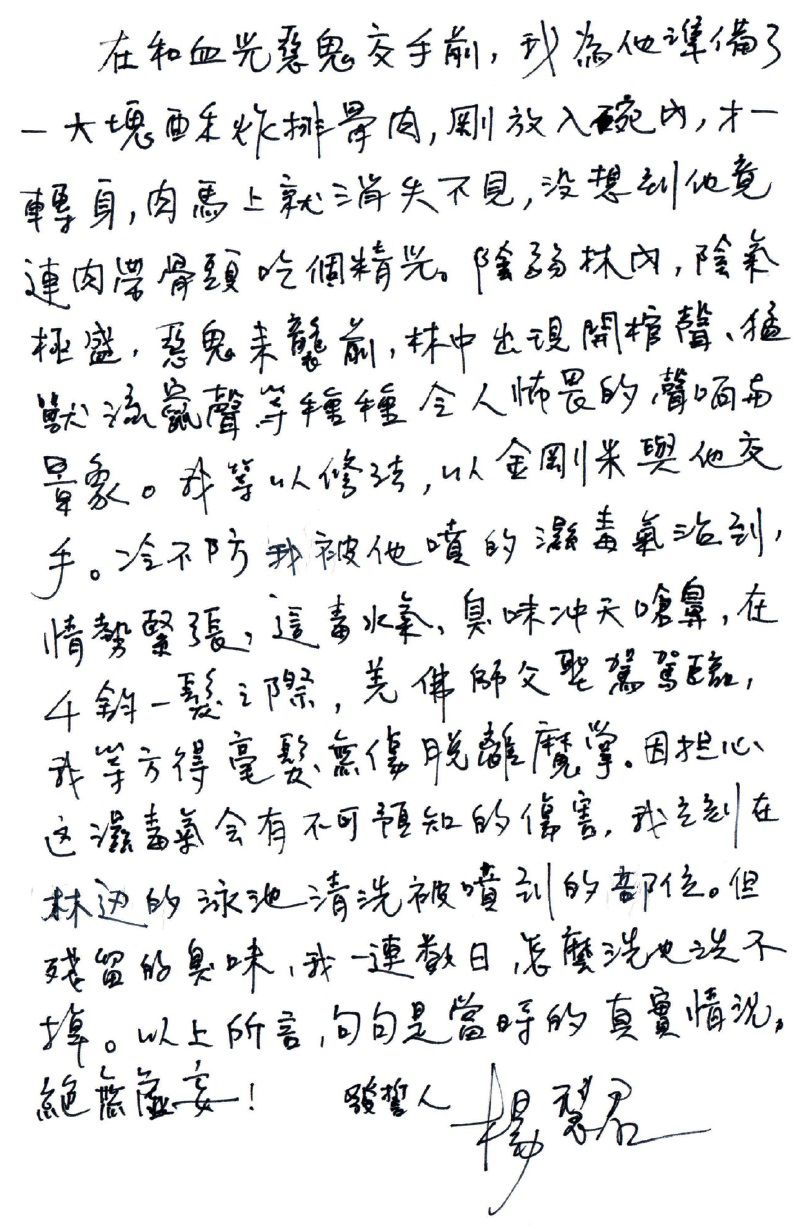 在和血光惡鬼交手前，我為他準備了
一大塊酥炸排骨肉，剛放入碗內，才一
轉身，肉馬上就消失不見，沒想到他竟
連肉帶骨頭吃個精光。陰弱林內，陰氣
極盛，惡鬼來襲前，林中出現開棺聲、猛
獸流竄聲等種種令人怖畏的聲响与
景象。我等以修法，以金剛米與他交
手。冷不防我被他噴的濕毒氣沾到，
情勢緊張，這毒水氣，臭味冲天嗆鼻，在
千鈞一髮之際，羌佛師父聖駕駕臨，
我等方得毫髮無傷脱離魔掌。因担心
这濕毒氣会有不可預知的傷害，我立刻在
林边的泳池清洗被噴到的部位。但
殘留的臭味，我一連數日，怎麼洗也洗不
掉。以上所言，句句是當時的真實情況，
絕無虛妄！ 發誓人 楊慧君